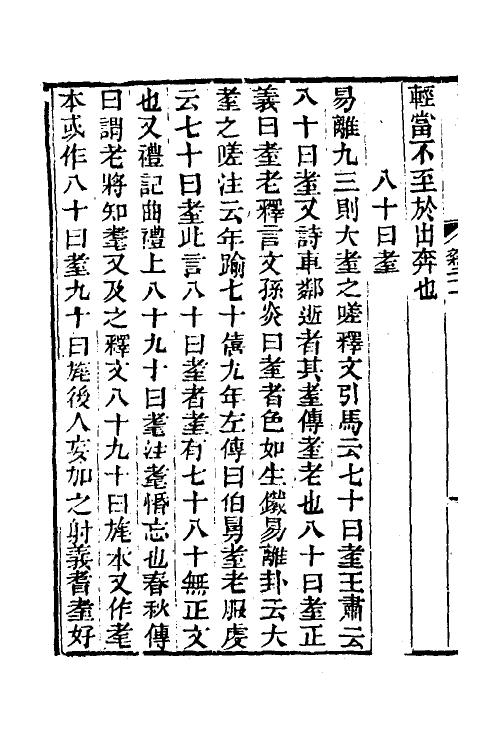 輕當不至於出奔也
八十曰耋
易離九三則大耋之嗟釋文引馬云七十曰耋王肅云
八十曰耋又詩車鄰逝者其耋傳耋老也八十曰耋正
義曰耋老釋言文孫炎曰耋者色如生鐵易離卦云大
耋之嗟注云年踰七十僖九年左傳曰伯舅耋老服虔
云七十曰耋此言八十曰耋者耋有七十八十無正文
也又禮記曲禮上八十九十曰耄注耄惛忘也春秋傳
曰謂老將知耄又及之釋文八十九十曰旄本又作耄
本或作八十曰耋九十曰旄後人妄加之射義耆耋好